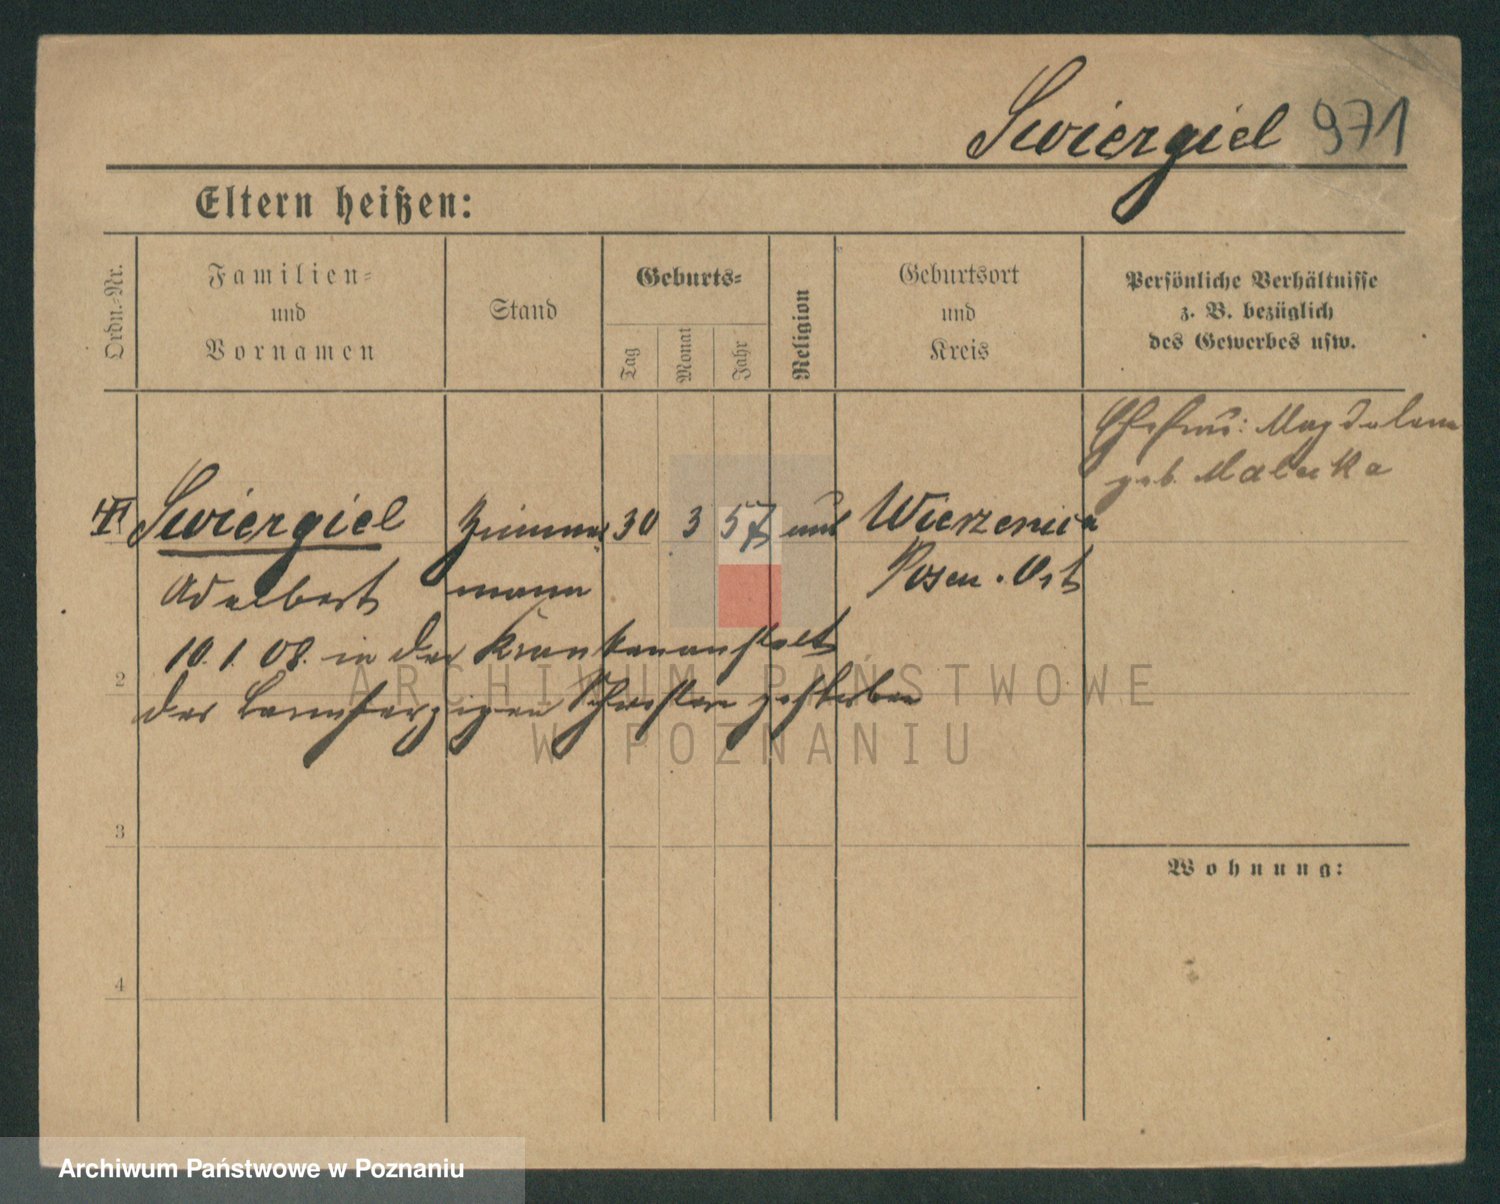 Swiergiel 971
Eltern heißen:
Ordn.-Nr.
Familien-
und
Vornamen
Stand
Geburts-
Tag
Monat
Jahr
Religion
Geburtsort
und
Kreis
Persönliche Verhältnisse
z. B. bezüglich
des Gewerbes usw.
Ehefrau: Magdalena
geb. Malecka
Swiergiel Zimmer 30 3 57 Wierzenica
Adalbert mann Posen-Ost
10.1.08. in der Krankenanstalt
der barmherzigen Schwestern gestorben
2
3
4
Wohnung:
ARCHIWUM PAŃSTWOWE
W POZNANIU
Archiwum Państwowe w Poznaniu